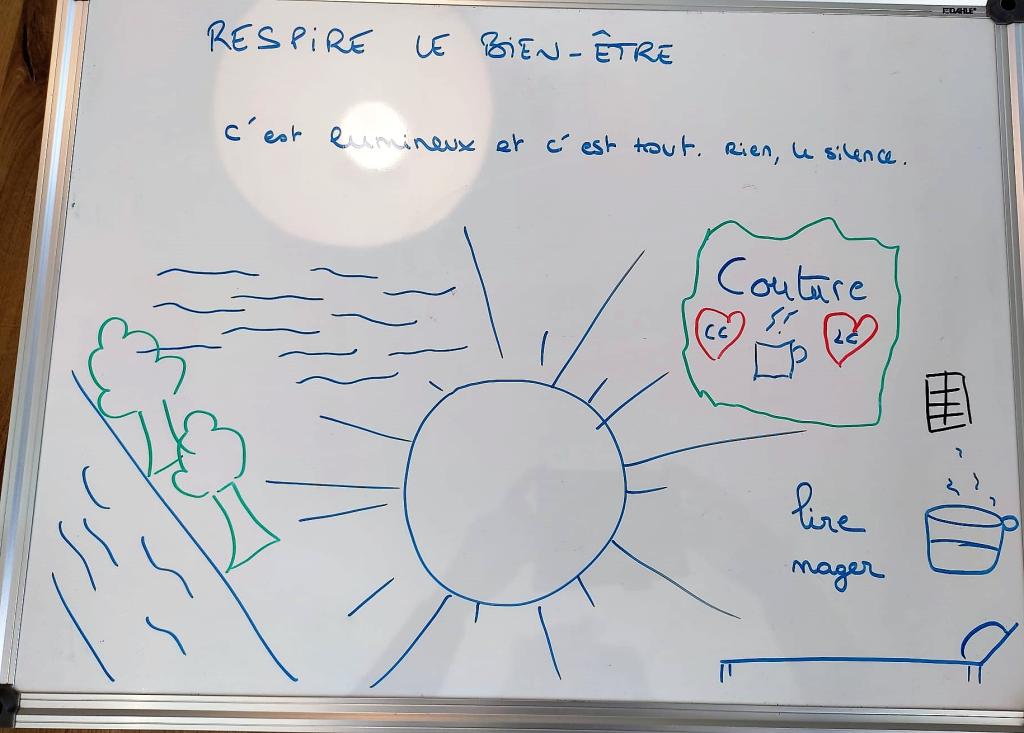 DAHLE
RESPIRE LE BIEN-ÊTRE
c'est lumineux et c'est tout. Rien, le silence.
Couture
lire
nager